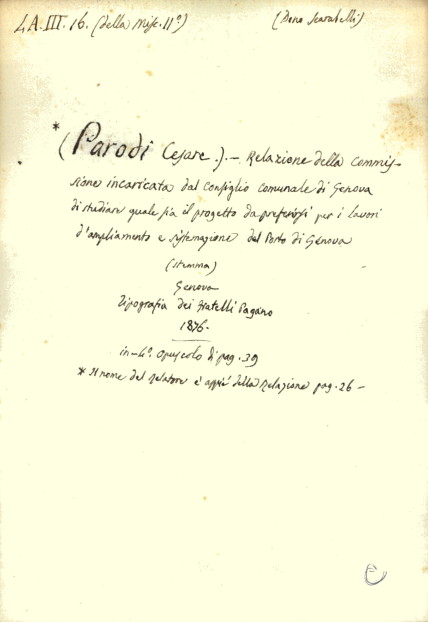 4.A.III.16. (della Misc. 11º) (Dono Scarabelli)
* (Parodi Cesare.). — Relazione della Commis-
sione incaricata dal Consiglio comunale di Genova
di studiare quale sia il progetto da preferirsi per i lavori
d'ampliamento e sistemazione del Porto di Genova
(stemma)
Genova
Tipografia dei fratelli Pagano
1876.
in-4º. opuscolo di pag. 39
* Il nome del relatore è appiè della Relazione pag. 26 —